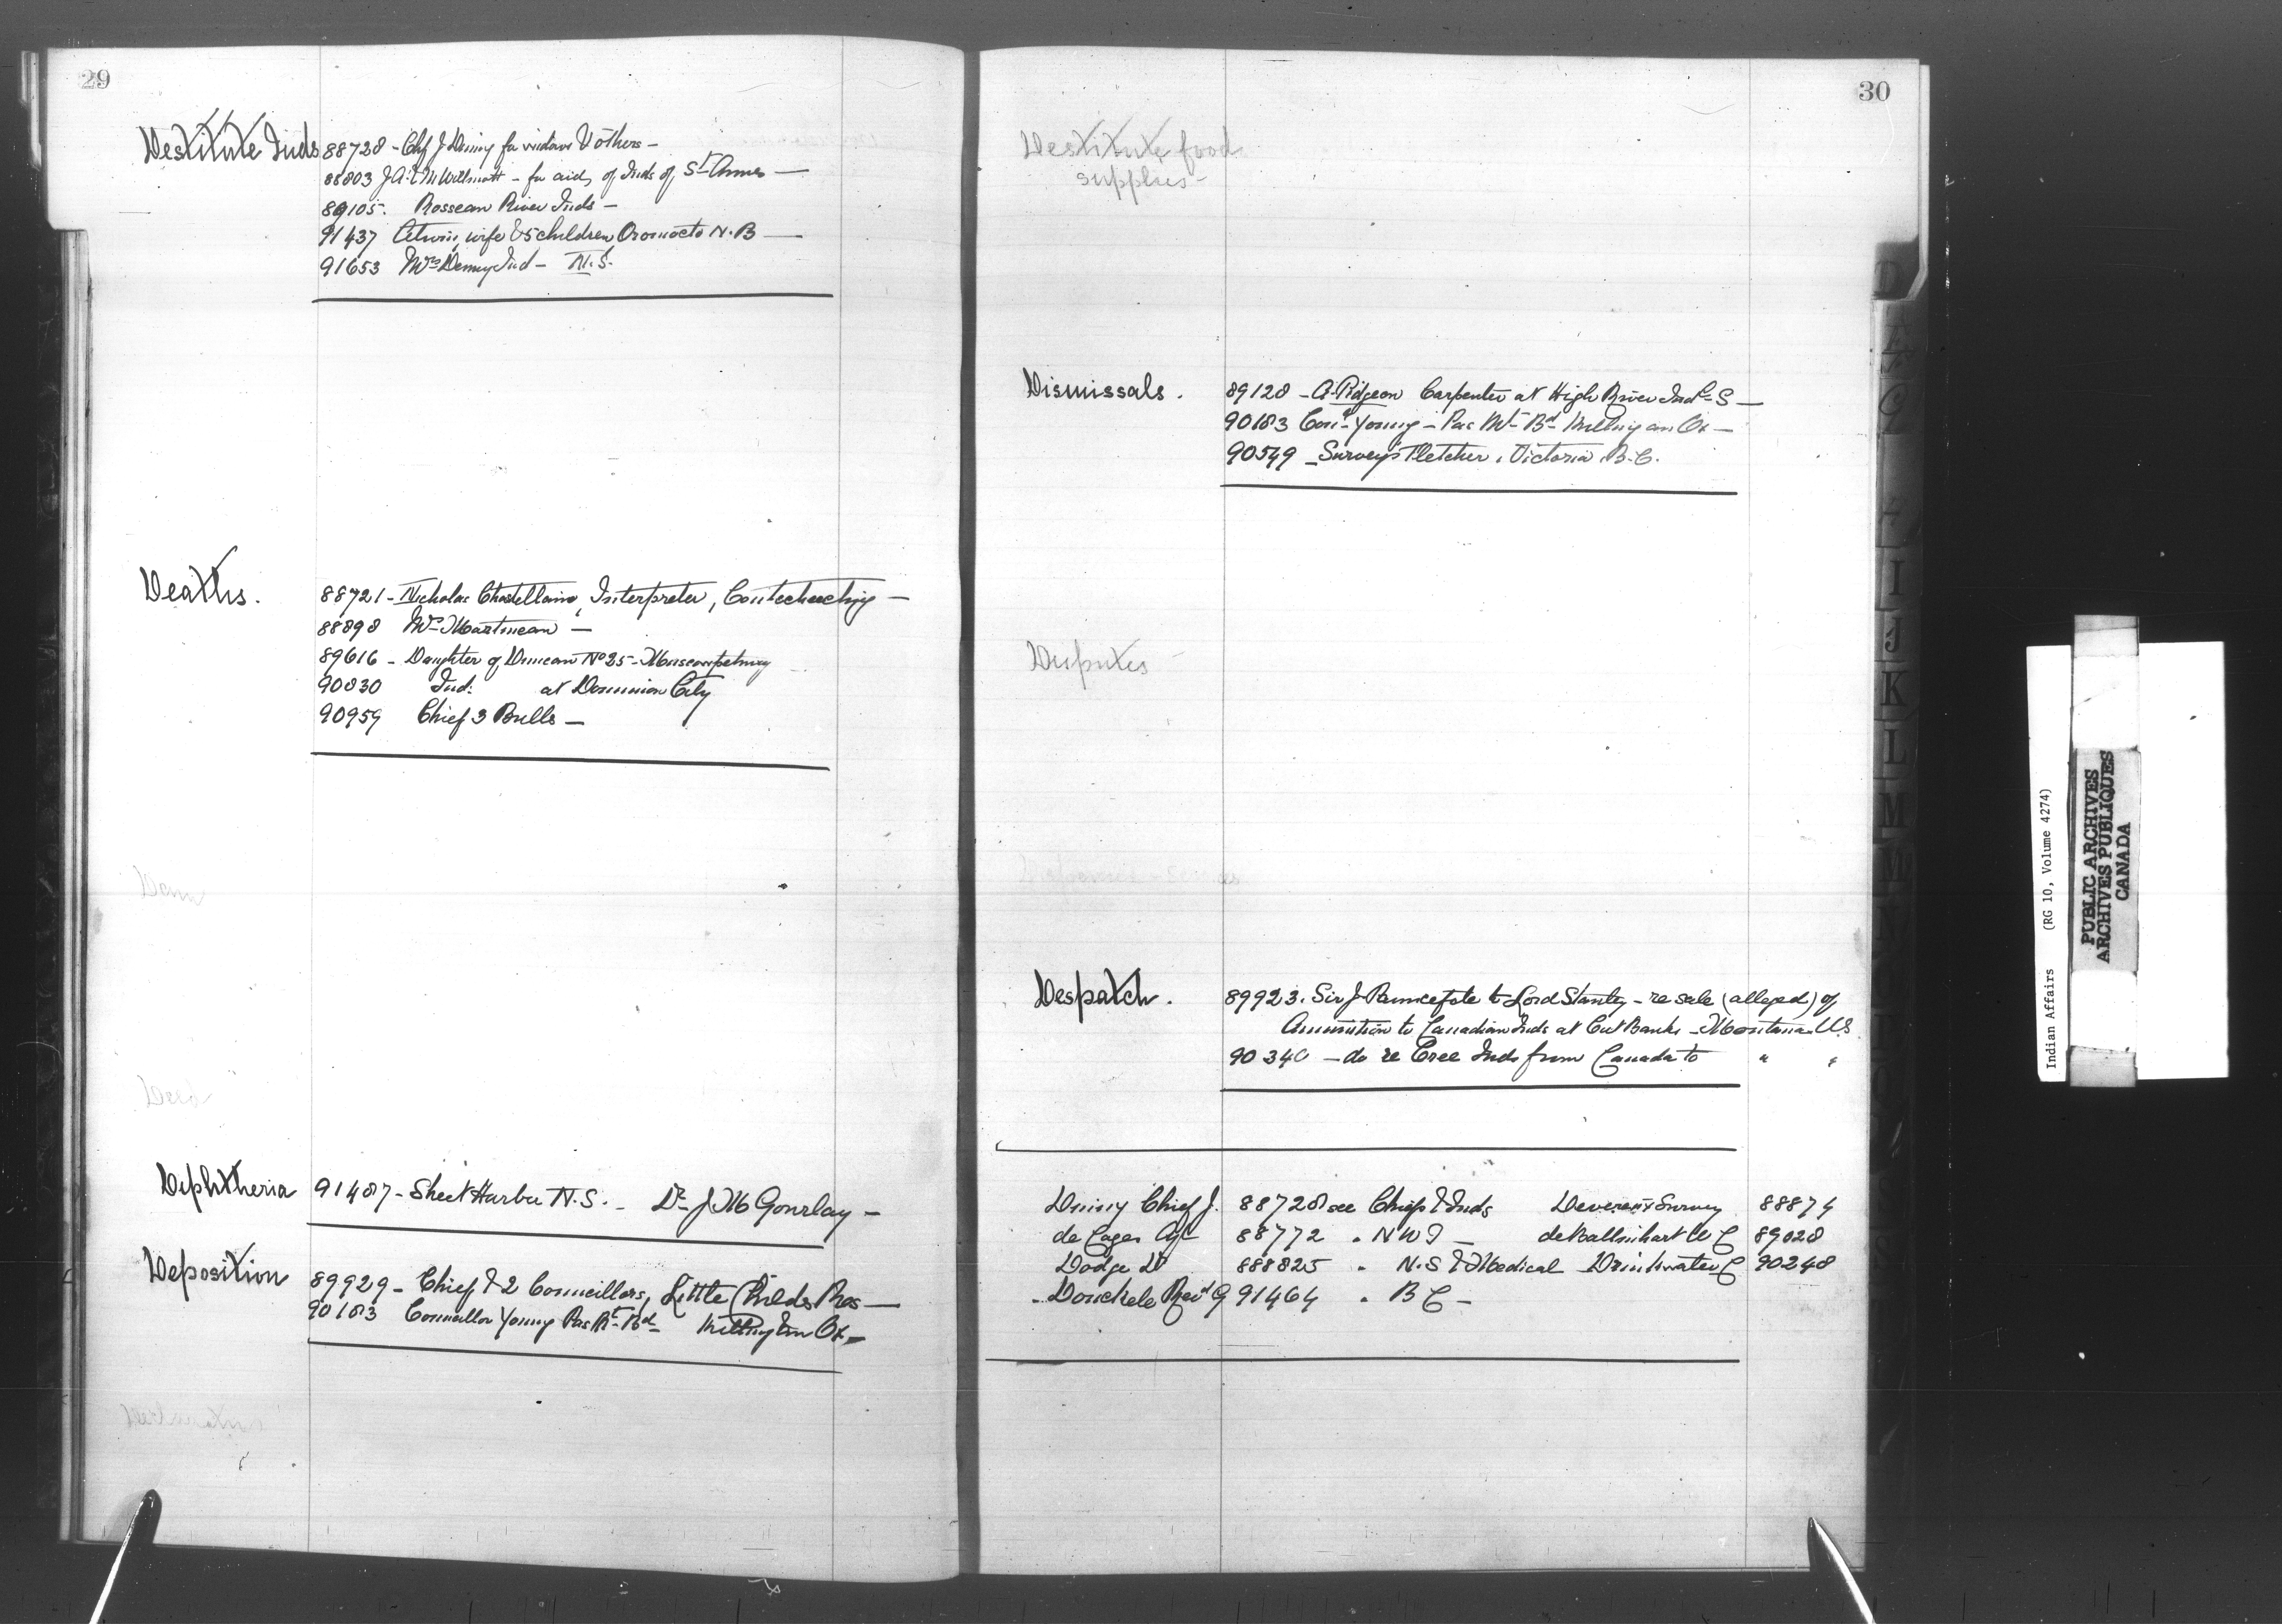 29
Destitute Inds 88728 - Chf J. Denny for widows & others -
88803 J.A. - for aid, of Inds of St Annes -
89105. Rosseau River Inds -
91437 wife & 5 children Oromocto N.B -
91653 Mrs Denny Ind - N.S.
Deaths. 88721 - Nicholas Chatellaine, Interpreter, Coutcheeching -
88898 Mr Martineau -
89616 - Daughter of Duncan No 25 - Muscowpetung
90830 Ind: at Dominion City
90959 Chief 3 Bulls -
Dam
Deed
Diphtheria 91487 - Sheet Harbor N.S. - Dr J M Gourlay -
Deposition 89929 - Chief & 2 Councillors, Little Childs Res -
90183 Councillor Young Pas Mt Bd
30
Destitute food
supplies -
Dismissals. 89128 - A. Pidgeon Carpenter at High River Indl S -
90183 Counr Young - Pas Mt Bd
90549 - Survey's Fletcher, Victoria, B.C.
Disputes -
Despatch. 89923. Sir J Pauncefote to Lord Stanley - re sale (alleged) of
Amunition to Canadian Inds at Cut Bank - Montana U.S
90340 - do re Cree Inds from Canada to " "
Denny Chief J. 88728 see Chiefs & Inds Devereux Survey 88874
de Cazes Agt 88772 " NWT - de Ballinhart W C 89028
Dodge D 888825 " N.S & Medical Drinkwater C 90248
- Donckele Revd G 91464 " B C -
D
I
J
K
L
M
Indian Affairs (RG 10, Volume 4274)
PUBLIC ARCHIVES
ARCHIVES PUBLIQUES
CANADA